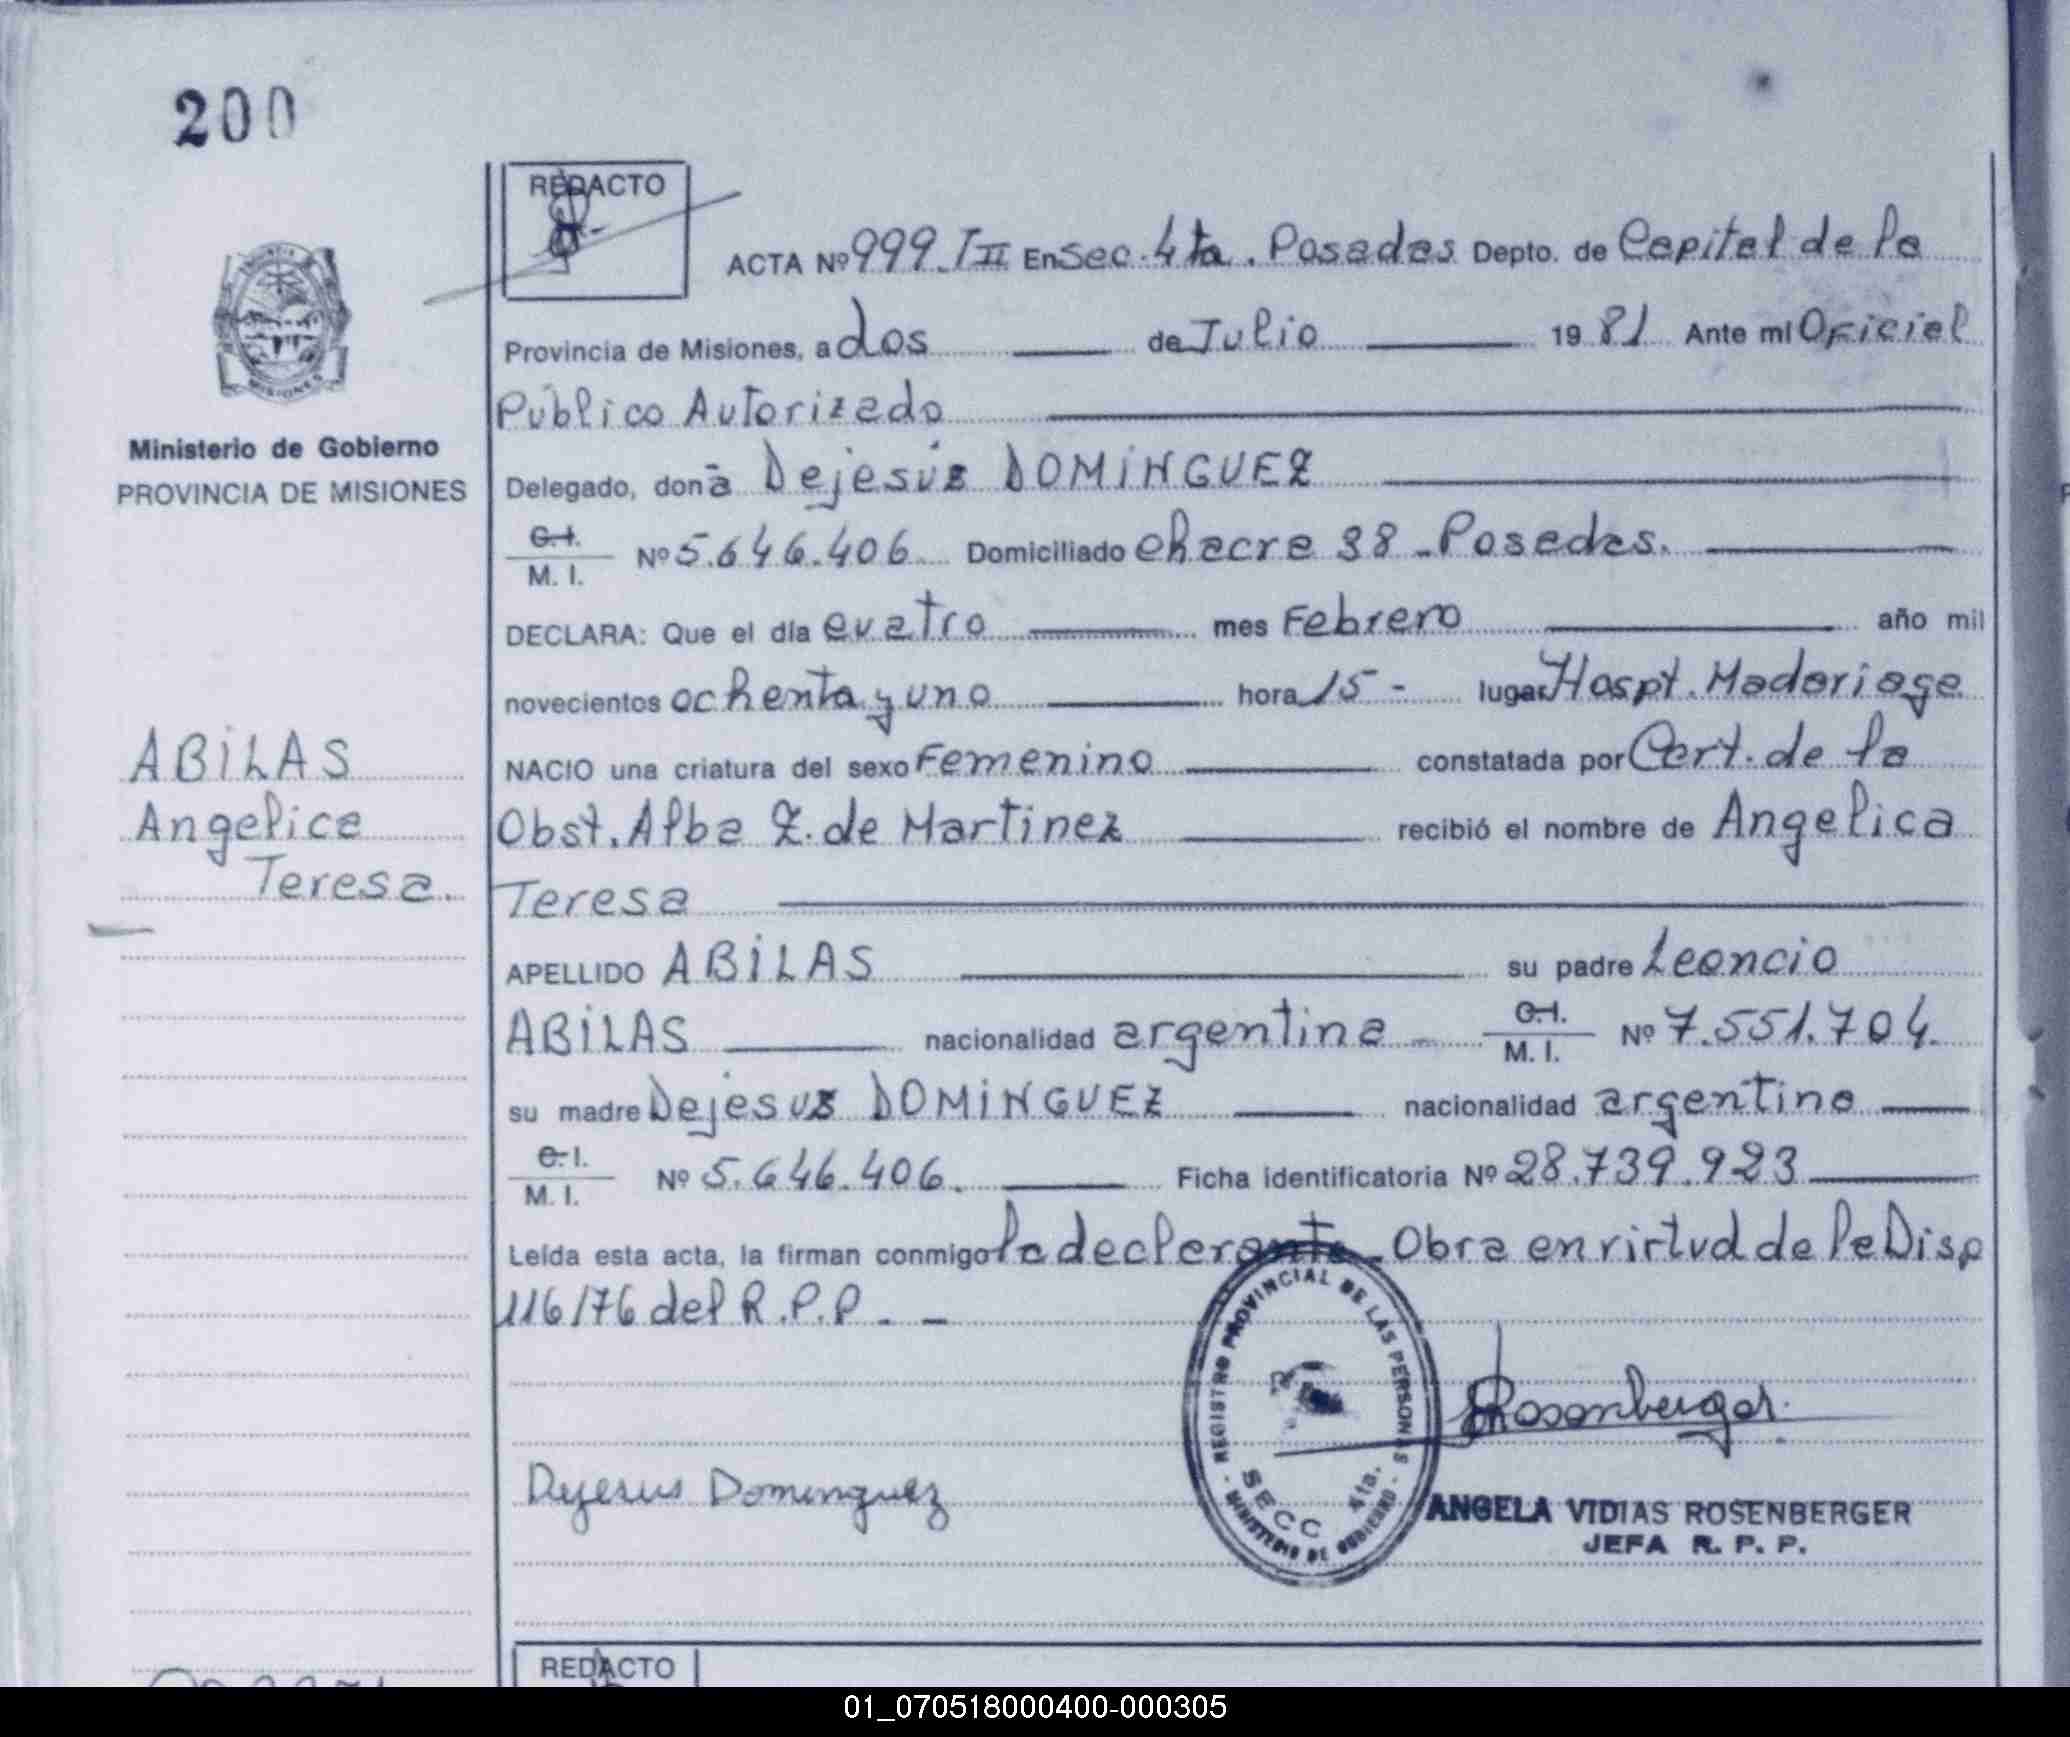 200
REDACTO
ACTA Nº 999. TIII En Sec. 4ta. Posadas Depto. de Capital de la
Provincia de Misiones, a dos de Julio 1981 Ante mí Oficial
Público Autorizado
Ministerio de Gobierno
PROVINCIA DE MISIONES
Delegado, doña Dejesús DOMINGUEZ
C.I.
M. I. Nº 5.646.406 Domiciliado chacra 38 - Posadas.
DECLARA: Que el día cuatro mes Febrero año mil
novecientos ochenta y uno hora 15 - lugar Hospt. Madariaga
NACIO una criatura del sexo Femenino constatada por Cert. de la
Obst. Alba Z. de Martinez recibió el nombre de Angelica
Teresa
ABILAS
Angelica
Teresa.
APELLIDO ABILAS su padre Leoncio
ABILAS nacionalidad argentina C.I. M. I. Nº 7.551.704.
su madre Dejesus DOMINGUEZ nacionalidad argentina
C.I.
M. I. Nº 5.646.406. Ficha identificatoria Nº 28.739.923
Leída esta acta, la firman conmigo la declarante - Obra en virtud de la Disp
116/76 del R.P.P. - -
REGISTRO PROVINCIAL DE LAS PERSONAS
- MINISTERIO DE GOBIERNO -
SECC 4ta.
Rosenberger.
Dejesus Dominguez
ANGELA VIDIAS ROSENBERGER
JEFA R. P. P.
REDACTO
01_070518000400-000305